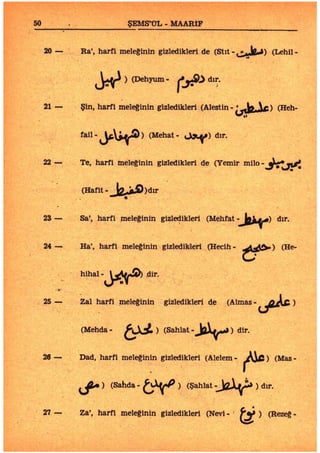 50 ŞEMS'ÜL - MAARİF
20 — Ra', harfi meleğinin gizledikleri de (Stıt - سطيت) (Lehil -
لهيل) (Dehyum - دهيوم) dır.
21 — Şin, harfi meleğinin gizledikleri (Alestin - علسطين) (Heh-
fail - ههفاعل) (Mehat - ) dır.
22 — Te, harfi meleğinin gizledikleri de (Yemir milo -
(Hafit - هفيط)dır
23 — Sa', harfi meleğinin gizledikleri (Mehfat - مهفط) dır.
24 — Ha', harfi meleğinin gizledikleri (Hecih - ) (He-
hihal - ) dir.
25 — Zal harfi meleğinin gizledikleri de (Almas - علمص)
(Mehda - ) (Sahlat - سهلط) dir.
26 — Dad, harfi meleğinin gizledikleri (Alelem - ) (Mas -
مص) (Sahda - صهدع) (Şahlat - شهلط) dır.
27 — Za', harfi meleğinin gizledikleri (Nevi - نوع) (Rezeğ -